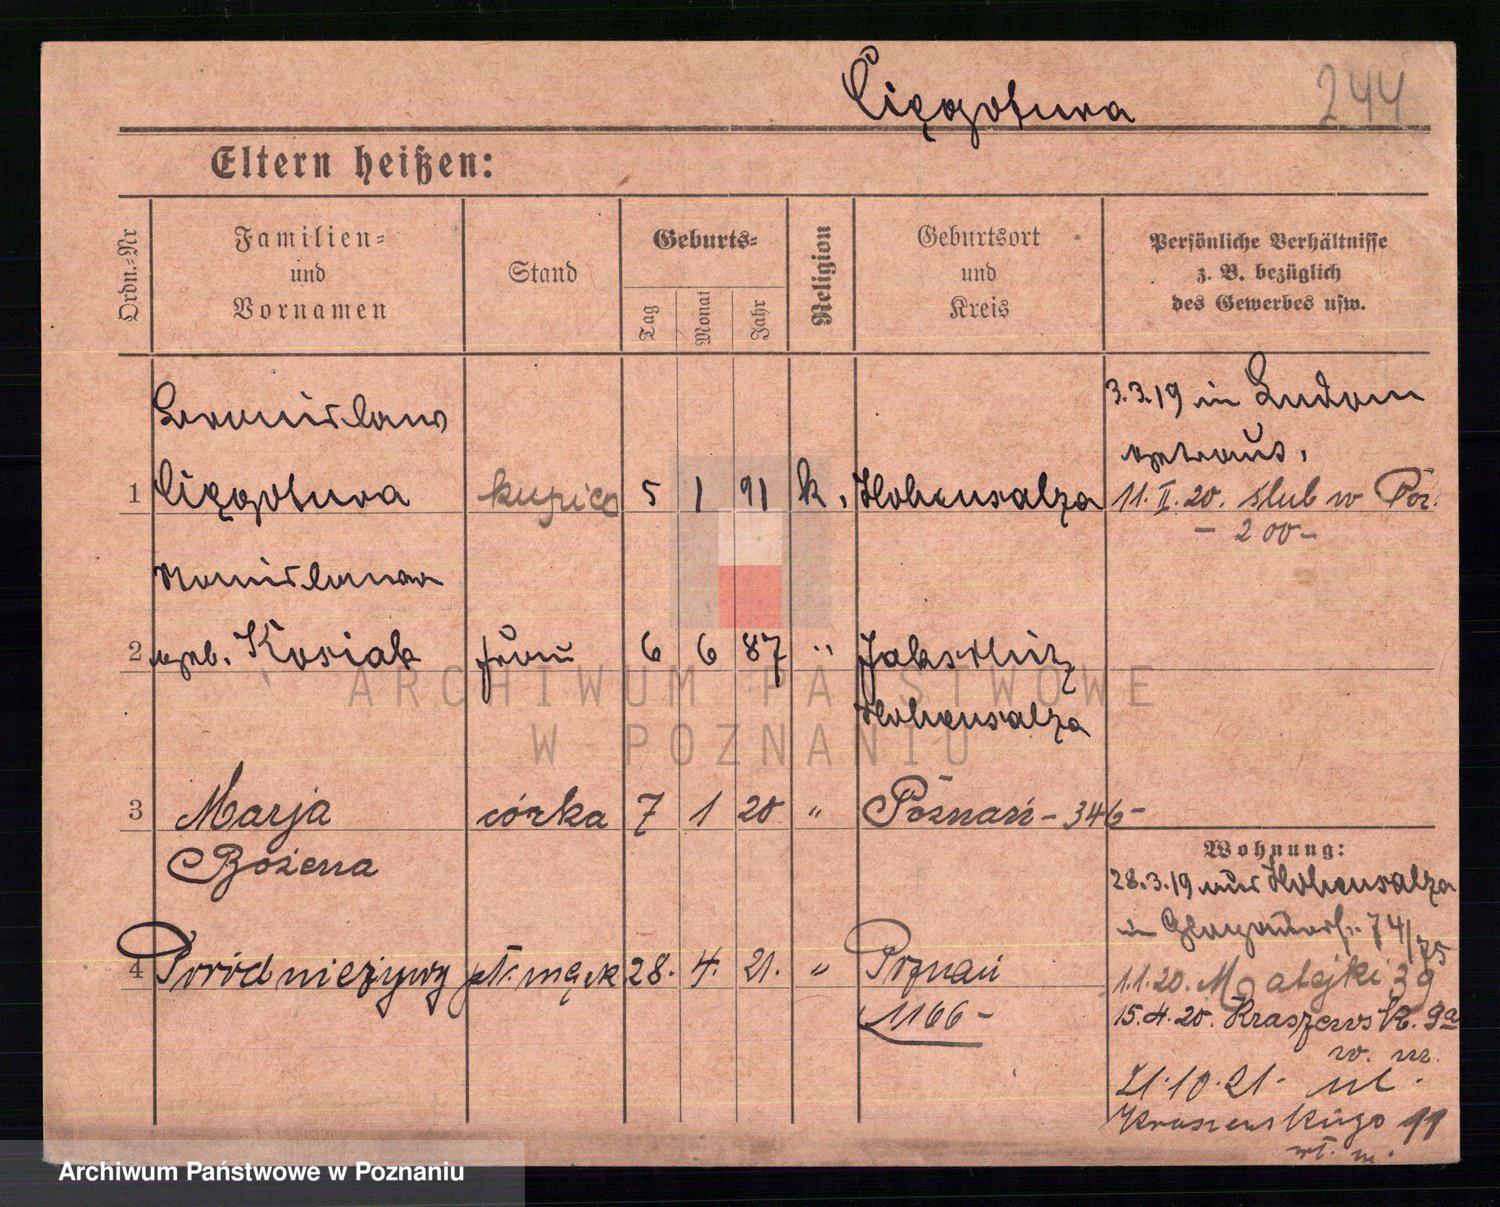 Cięgotura 244
Eltern heißen:
Ordn.-Nr
Familien-
und
Vornamen
Stand
Geburts-
Tag
Monat
Jahr
Religion
Geburtsort
und
Kreis
Persönliche Verhältnisse
z. B. bezüglich
des Gewerbes usw.
Bronislaus
3.3.19 in
getraut.
1 Cięgotura kupiec 5 1 91 k. Hohensalza
11. II. 20. ślub w Poz.
- 200 -
Stanislawa
2 geb. Kosiak frau 6 6 87 " Jakschitz
Hohensalza
3 Marja córka 7 1 20 " Poznań - 346 -
Bożena
Wohnung:
28.3.19 aus Hohensalza
in 74/75
4 Poród nieżywy pł. męsk 28. 4. 21. " Poznań
1166 -
1.1.20. Matejki 39
15.4.20. Kraszewsk. 9a
w. m.
21.10.21. ul.
Kraszewskiego 11
w. m.
ARCHIWUM PAŃSTWOWE
W POZNANIU
Archiwum Państwowe w Poznaniu